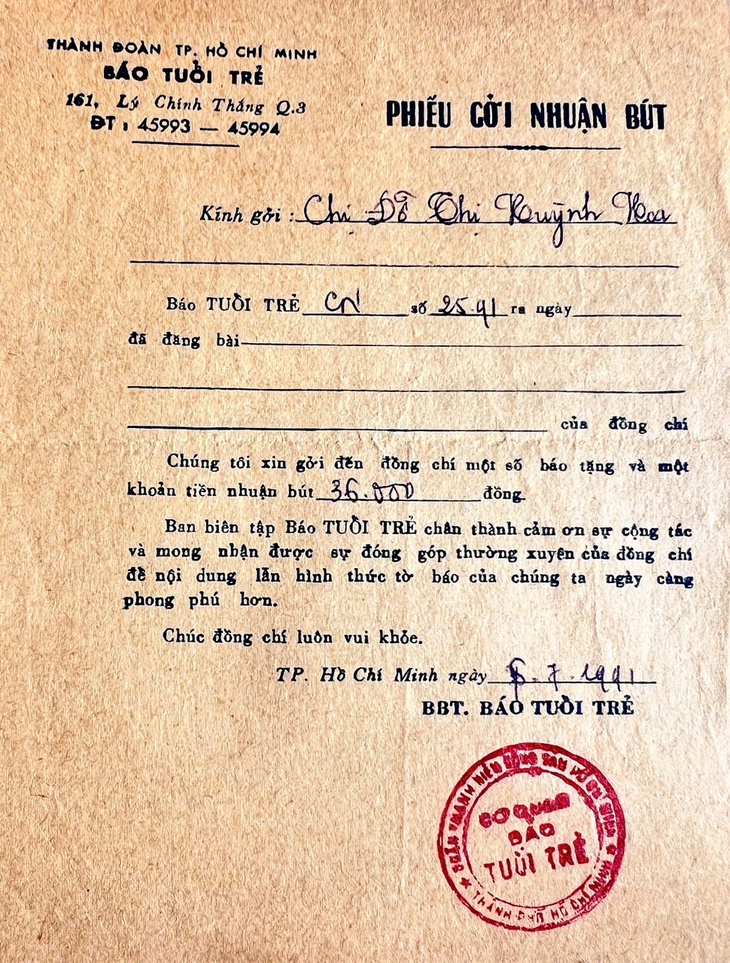 THÀNH ĐOÀN TP. HỒ CHÍ MINH
BÁO TUỔI TRẺ
161, Lý Chính Thắng Q.3
ĐT : 45993 — 45994
PHIẾU GỞI NHUẬN BÚT
Kính gởi : Chị Đỗ Thị Huỳnh Hoa
Báo TUỔI TRẺ CN số 25-91 ra ngày
đã đăng bài
của đồng chí
Chúng tôi xin gởi đến đồng chí một số báo tặng và một
khoản tiền nhuận bút 36.000 đồng.
Ban biên tập Báo TUỔI TRẺ chân thành cảm ơn sự cộng tác
và mong nhận được sự đóng góp thường xuyên của đồng chí
để nội dung lẫn hình thức tờ báo của chúng ta ngày càng
phong phú hơn.
Chúc đồng chí luôn vui khỏe.
TP. Hồ Chí Minh ngày 5.7.1991
BBT. BÁO TUỔI TRẺ
ĐOÀN THANH NIÊN CỘNG SẢN HỒ CHÍ MINH
CƠ QUAN
BÁO
TUỔI TRẺ
★ THÀNH PHỐ HỒ CHÍ MINH ★